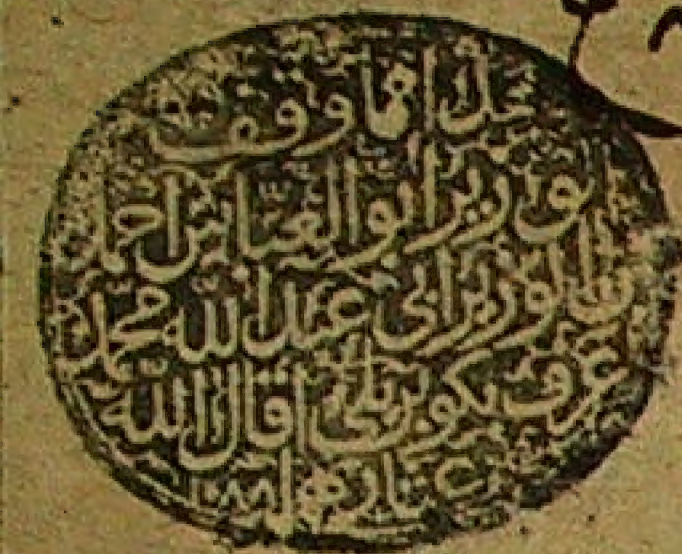 ما وقف
الوزير ابو العباس احمد
بن الوزير ابي عبد الله محمد
عرف بكوبريلي اقال الله
عثارهما ١٠٨٨